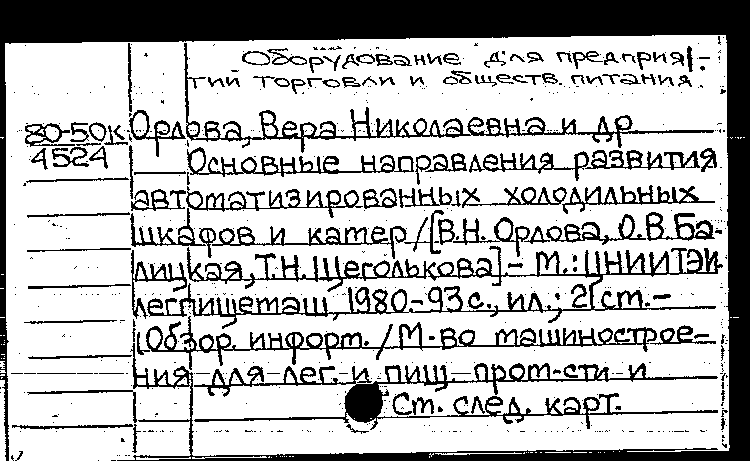 Оборудование для предприя-
тий торговли и обществ. питания.
80-50к Орлова, Вера Николаевна и др.
4524 Основные направления развития
автоматизированных холодильных
шкафов и камер/[В.Н. Орлова, О.В. Ба-
лицкая, Т.Н. Щеголькова].- М.: ЦНИИТЭИ-
легпищемаш, 1980.-93 с., ил.; 21 см.-
(Обзор. информ. / М-во машинострое-
ния для лег. и пищ. пром-сти и
См. след. карт.